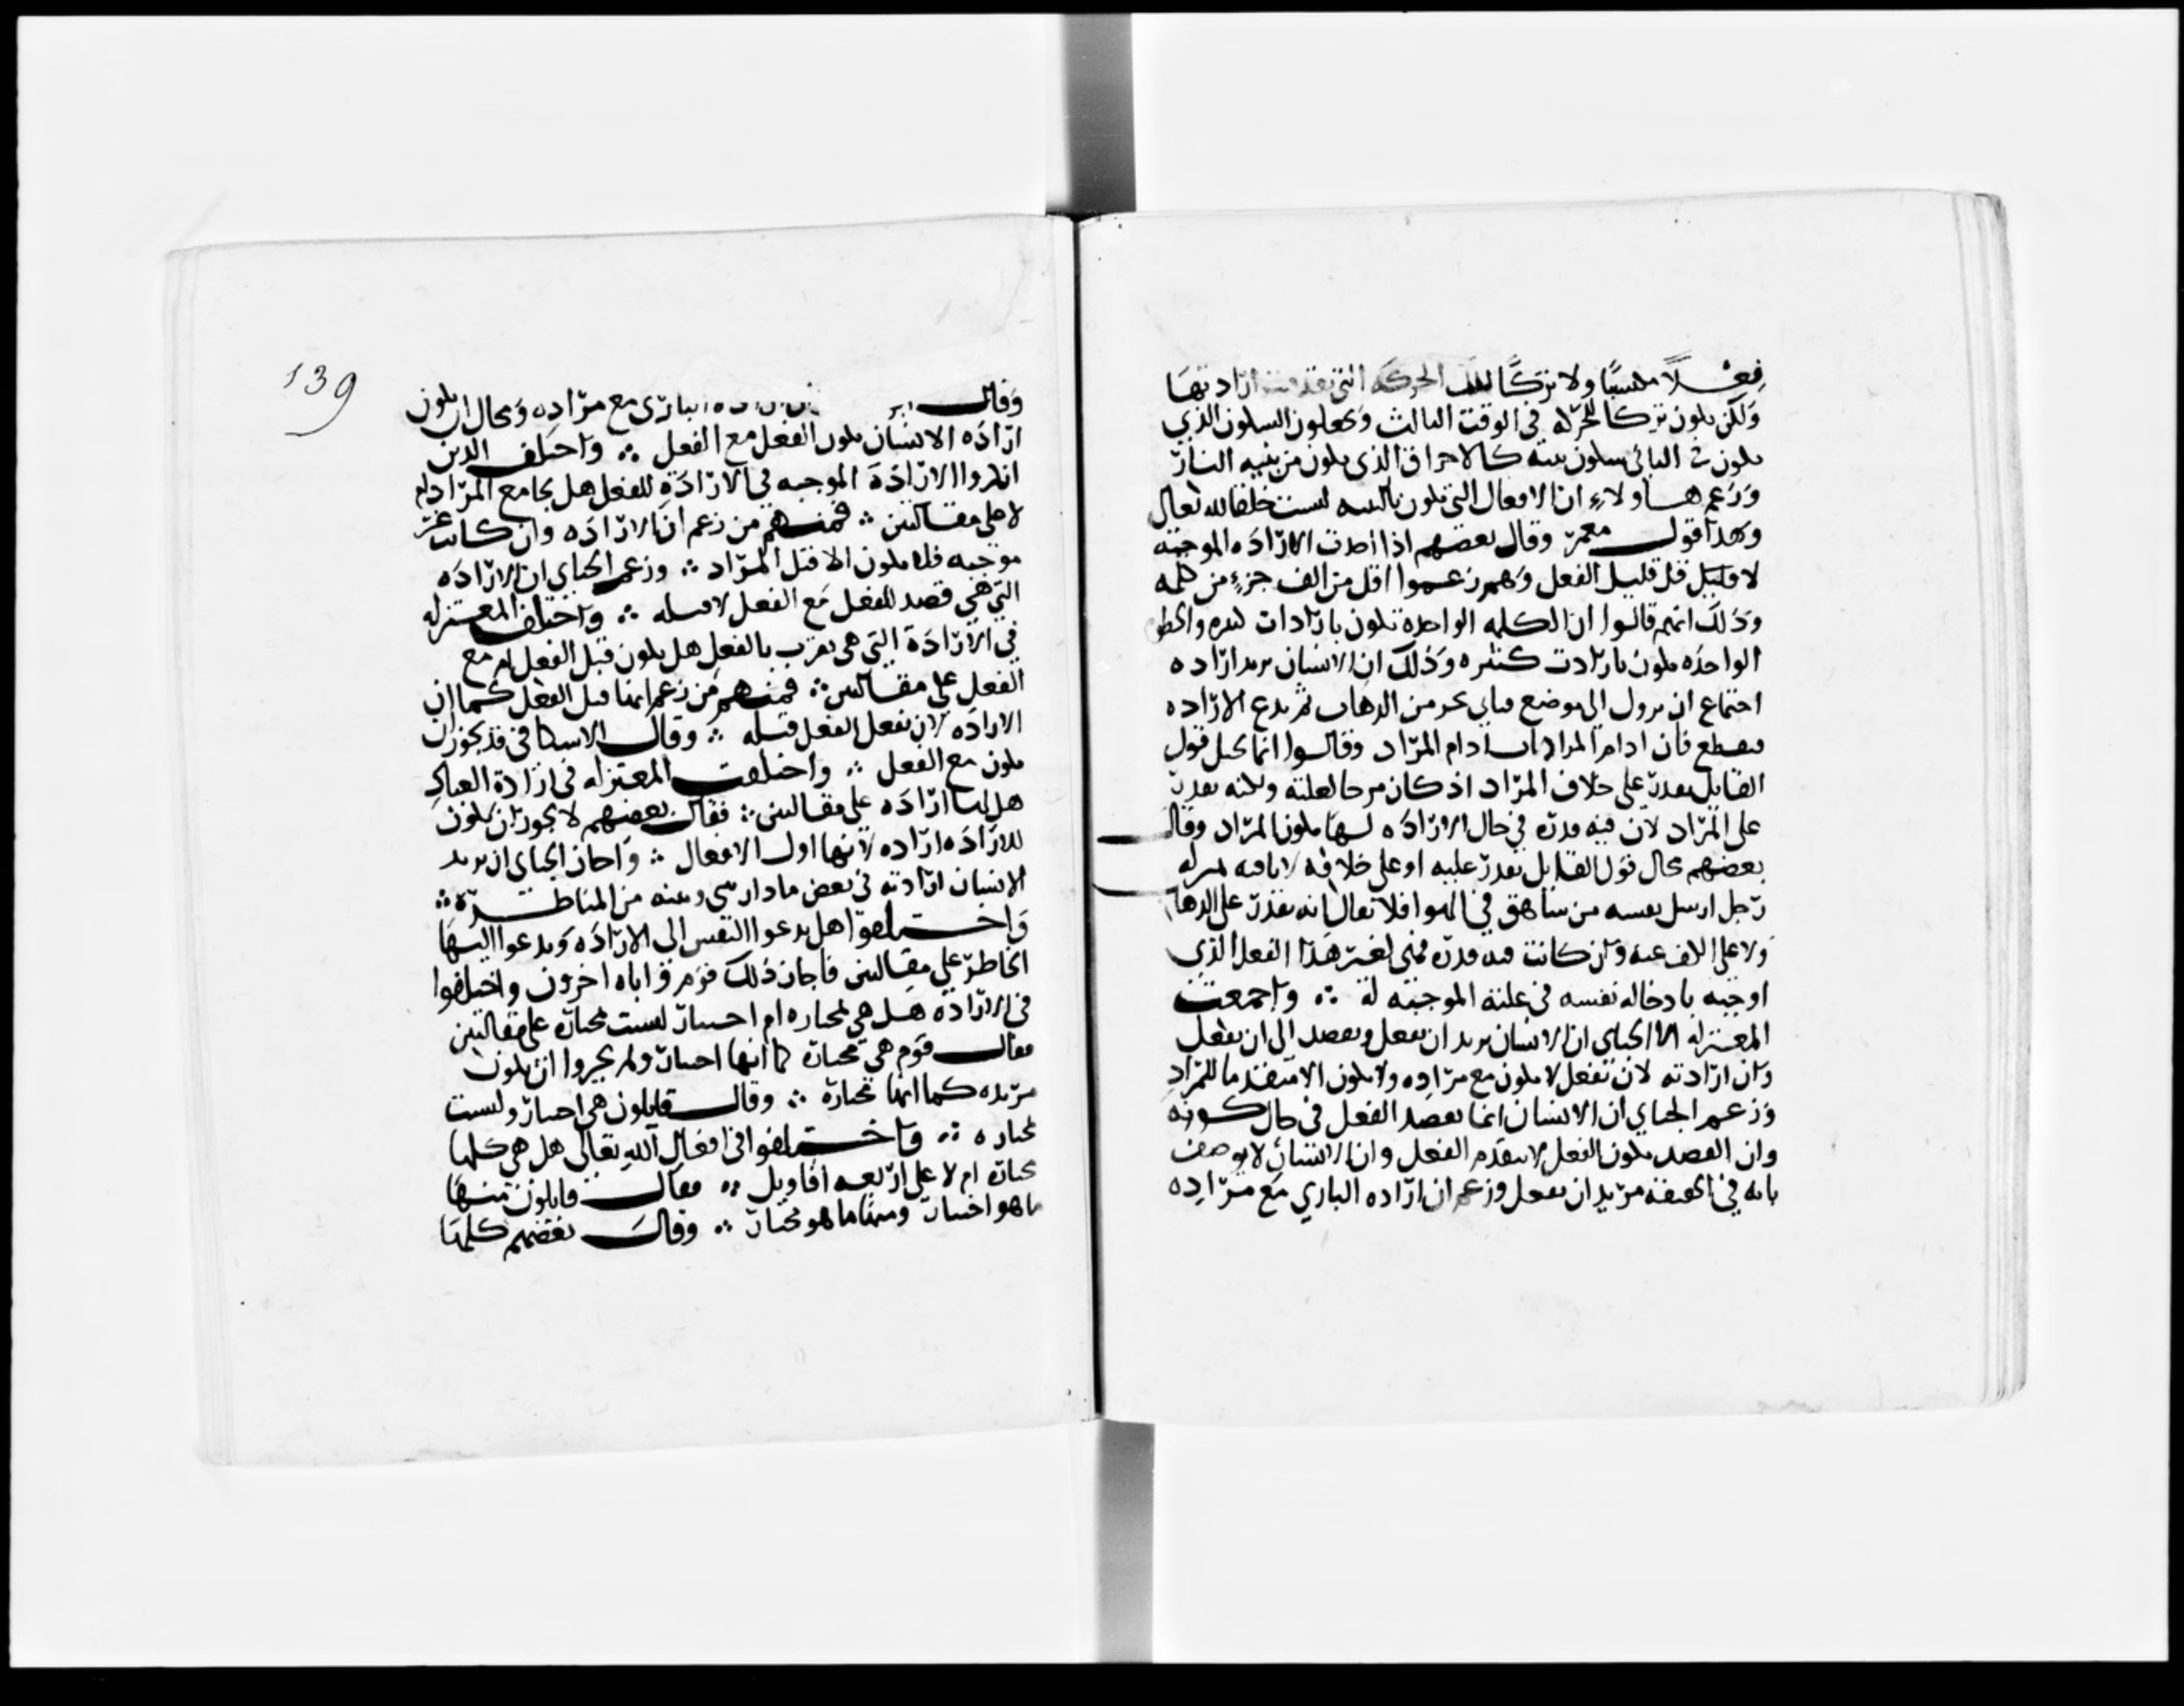 فعلا مكتسبا ولا تركا لتلك الحركة التي تقدمت ارادتها
ولكن يكون تركا للحركة في الوقت الثالث ويجعلون السكون الذي
يكون في الثاني سكون بنية كالاحراق الذي يكون من بنية النار
وزعم هاولاء ان الافعال التي تكون بالبنية ليست خلقا لله تعالى
وهذا قول معمر وقال بعضهم اذا الارادة الموجبة
لا قليل قليل الفعل وهم زعموا اقل من الف جزء من كلمة
وذلك انهم قالوا ان الكلمة الواحدة تكون بارادات كثيرة والخطوة
الواحدة تكون بارادات كثيرة وذلك ان الانسان يريد ارادة
اجتماع ان يزول الى موضع من الذهاب ثم يدع الارادة
فيقطع فان ادام المراد وقالوا انما يحيل قول
القايل يقدر على خلاف المراد اذ كان لعلته ولكنه يقدر
على المراد لان فيه قدرة في حال الارادة لها يكون المراد وقال
بعضهم محال قول القايل يقدر عليه او على خلافه بمنزلة
رجل ارسل نفسه من شاهق في الهوا فلا يقال انه يقدر على الذهاب
ولا على الكف عنه وان كانت فيه قدرة فهي لغير هذا الفعل الذي
اوجبه بادخاله نفسه في علته الموجبة له ∴ واجمعت
المعتزلة الا الجباي ان الانسان يريد ان يفعل ويقصد الى ان يفعل
وان ارادته لان تفعل لا يكون مع مراده ولا يكون الا متقدما للمراد
وزعم الجباي ان الانسان انما يقصد الفعل في حال كونه
وان القصد يكون الفعل لا يتقدم الفعل وان الانسان لا يوصف
بانه في الحقيقة مريد ان يفعل وزعم ان ارادة الباري مع مراده
139
وقال الباري مع مراده ومحال ان يكون
ارادة الانسان يكون الفعل مع الفعل ∴ واختلف الذين
انكروا الارادة الموجبة في الارادة للفعل هل يجامع المراد ام
لا على مقالتين ∴ فمنهم من زعم ان الارادة وان كانت غير
موجبة فلا يكون الا قبل المراد ∴ وزعم الجباي ان الارادة
التي هي قصد للفعل مع الفعل لا قبله ∴ واختلف المعتزلة
في الارادة التي هي تقرب بالفعل هل يكون قبل الفعل ام مع
الفعل على مقالتين ∴ فمنهم من زعم انها قبل الفعل كما ان
الارادة لان يفعل الفعل قبله ∴ وقال الاسكافي قد يجوز ان
يكون مع الفعل ∴ واختلفت المعتزلة في ارادة العباد
هل لها ارادة على مقالتين ∴ فقال بعضهم لا يجوز ان يكون
للارادة ارادة لانها اول الافعال ∴ واجاز الجباي ان يريد
الانسان ارادته في بعض ما دار بيني وبينه من المناظرة ∴
واختلفوا هل يدعوا النفس الى الارادة ويدعوا اليها
الخاطر على مقالتين فاجاز ذلك قوم واباه اخرون واختلفوا
في الارادة هل هي مختارة ام اختيار ليست مختارة على مقالتين
فقال قوم هي مختارة كما انها اختيار ولم يجيزوا ان يكون
مريده كما انها مختارة ∴ وقال قايلون هي اختيار وليست
مختارة ∴ واختلفوا في افعال الله تعالى هل هي كلها
مختارة ام لا على اربعة اقاويل ∴ فقال قايلون منها
ما هو اختيار ومنها ما هو مختار ∴ وقال بعضهم كلها